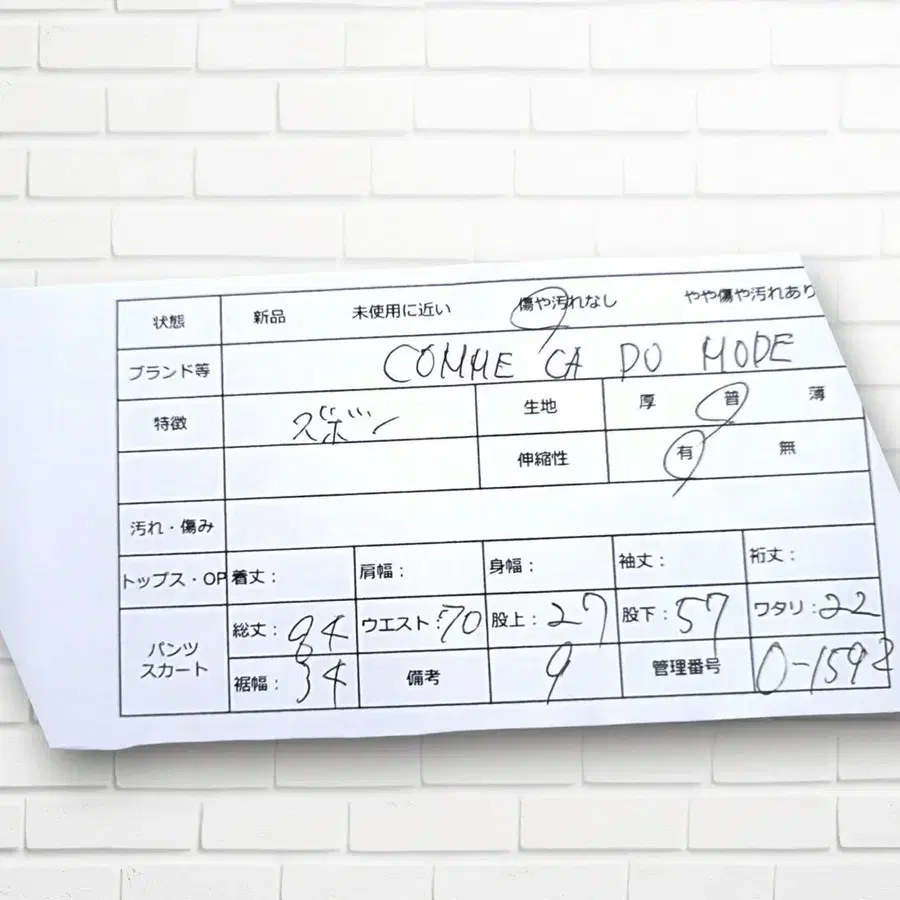 状態 新品 未使用に近い 傷や汚れなし やや傷や汚れあり
ブランド等 COMME CA DU MODE
特徴 ズボン 生地 厚 普 薄
伸縮性 有 無
汚れ・傷み
トップス・OP 着丈： 肩幅： 身幅： 袖丈： 裄丈：
パンツ スカート
総丈：84 ウエスト：70 股上：27 股下：57 ワタリ：22
裾幅：34 備考 9 管理番号 0-1592